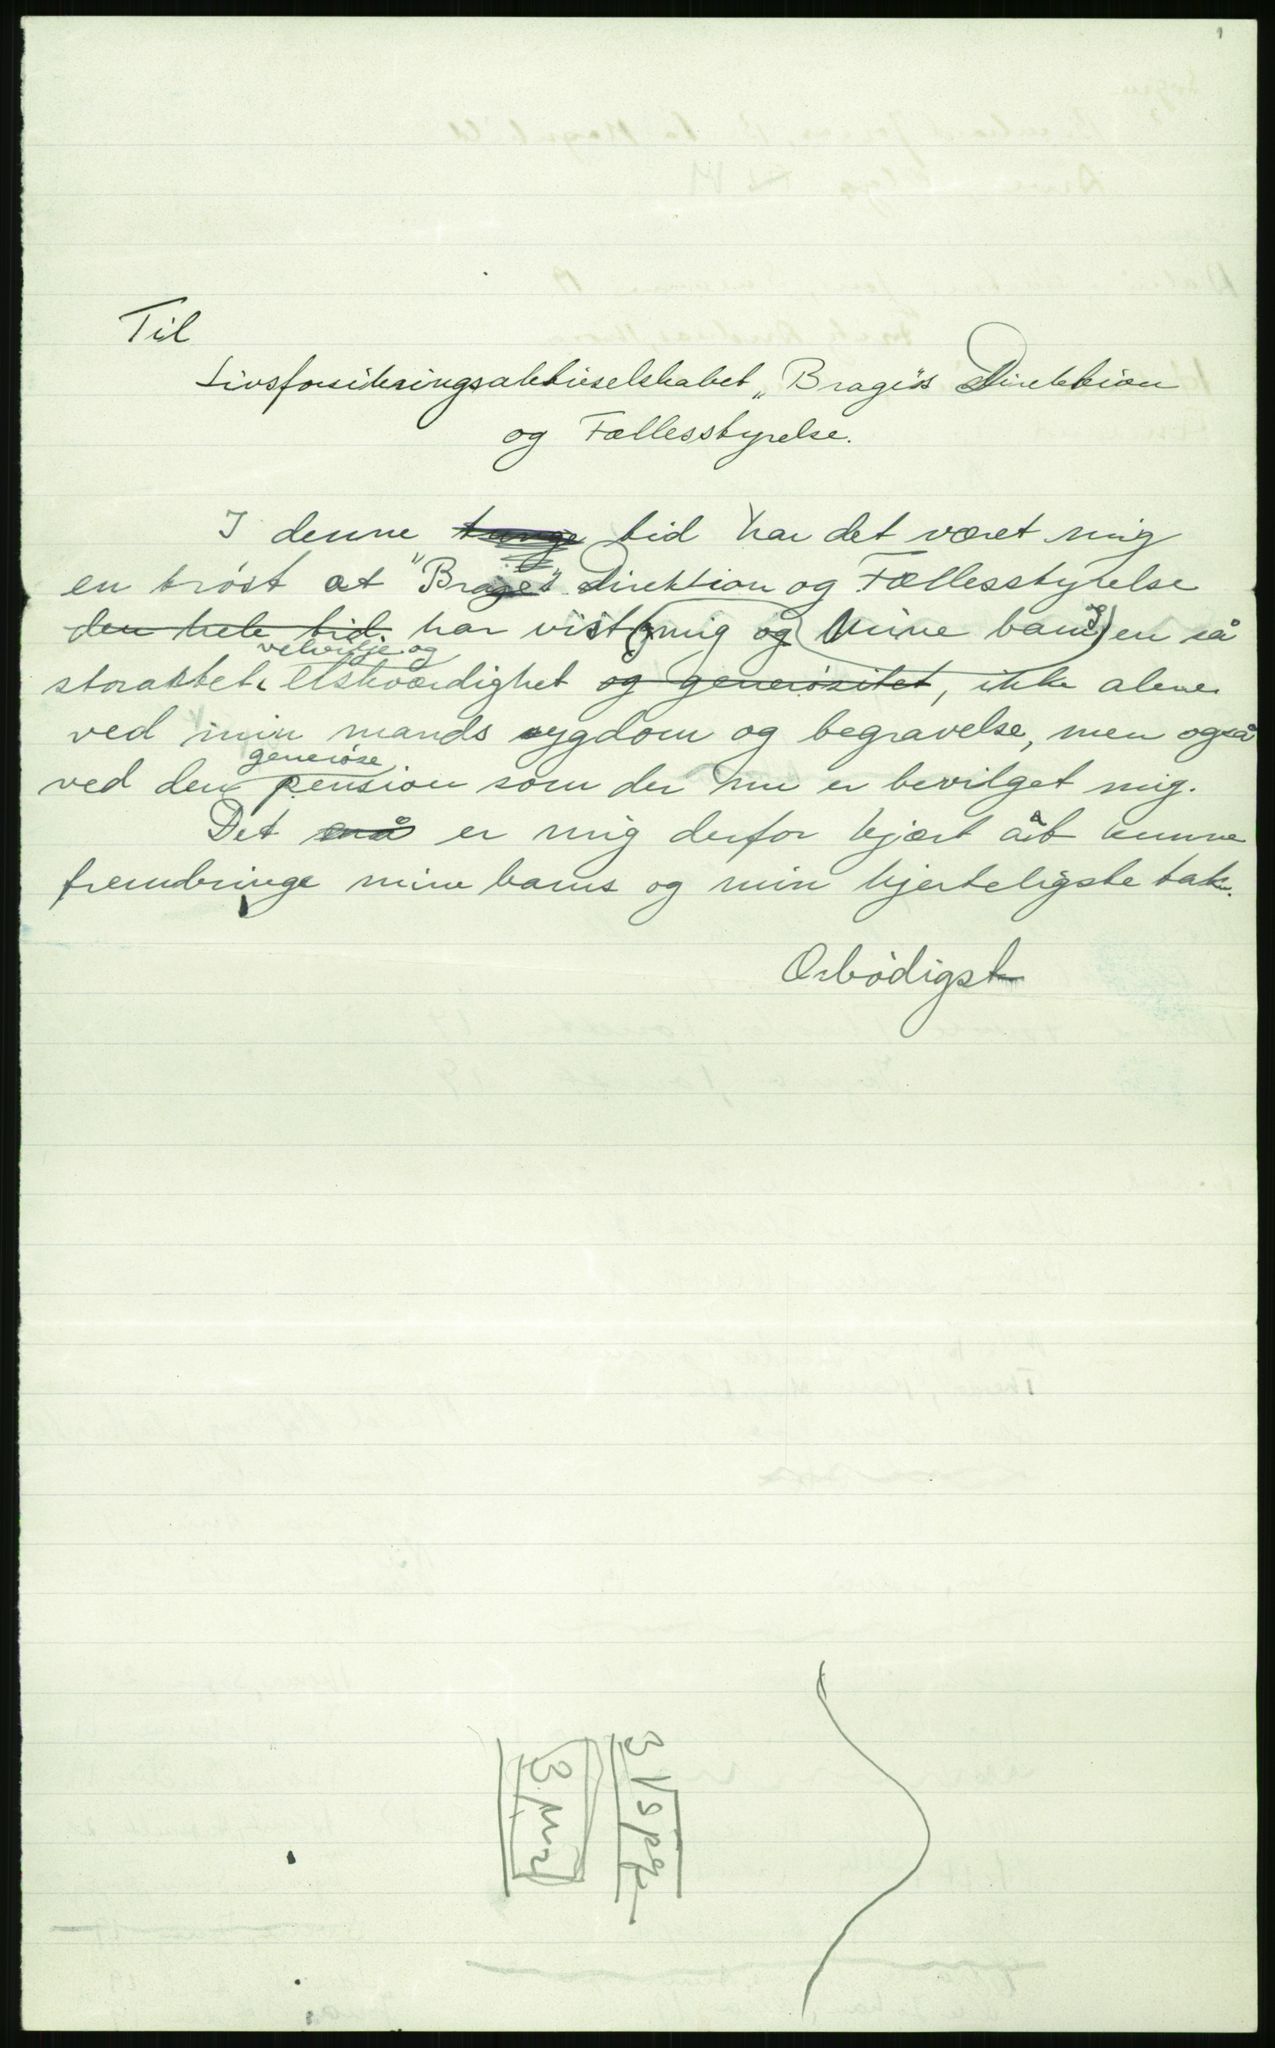 Til
Livsforsikringsaktieselskabet "Brage"s Direktion
og Fællesstyrelse.
I denne tunge tid har det været mig
en trøst at "Brage"s Direktion og Fællesstyrelse
den hele tid har vist (mig og mine barn) en så
velvilje og
storartet elskværdighet og generøsitet, ikke alene
ved min mands sygdom og begravelse, men også
generøse
ved den pension som der nu er bevilget mig.
Det må er mig derfor kjært at kunne
frembringe mine barns og min hjerteligste tak.
Ærbødigst